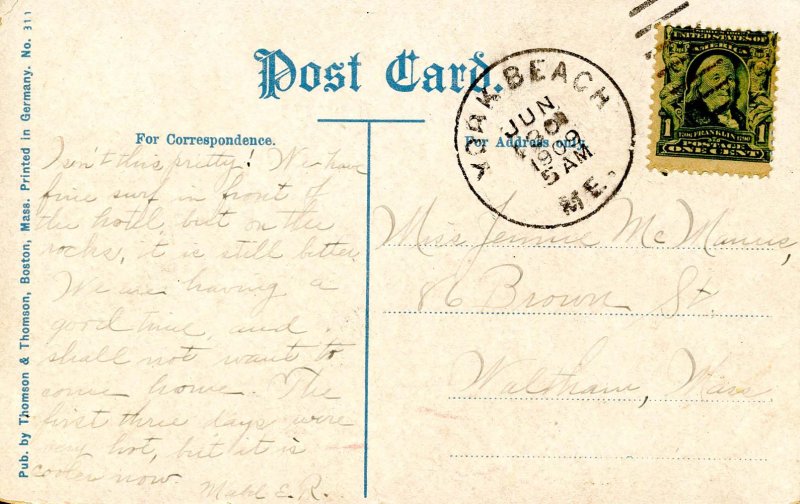 Post Card.
For Correspondence.
For Address only.
Pub. by Thomson & Thomson, Boston, Mass. Printed in Germany. No. 311
YORK BEACH
JUN
30
1909
5 AM
ME.
UNITED STATES OF
AMERICA
1 FRANKLIN 1
POSTAGE
ONE CENT
Isn't this pretty! We have
fine surf in front of
the hotel, but on the
rocks, it is still better.
We are having a
good time and
shall not want to
come home. The
first three days were
very hot, but it is
cooler now.
Mabel E. R.
Miss Jennie McManus,
86 Brown St.
Waltham, Mass